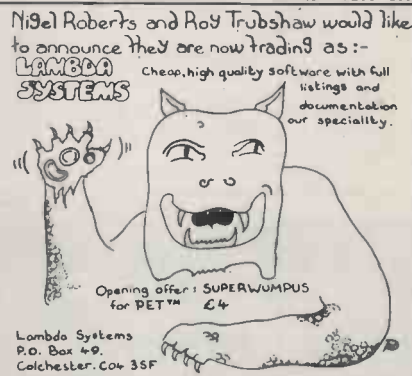 Nigel Roberts and Roy Trubshaw would like
to announce they are now trading as :-
LAMBDA
SYSTEMS
Cheap, high quality software with full
listings and
documentation
our speciallty.
Opening offer : SUPERWUMPUS
for PET™ £4
Lambda Systems
P.O. Box 49.
Colchester. CO4 3SF